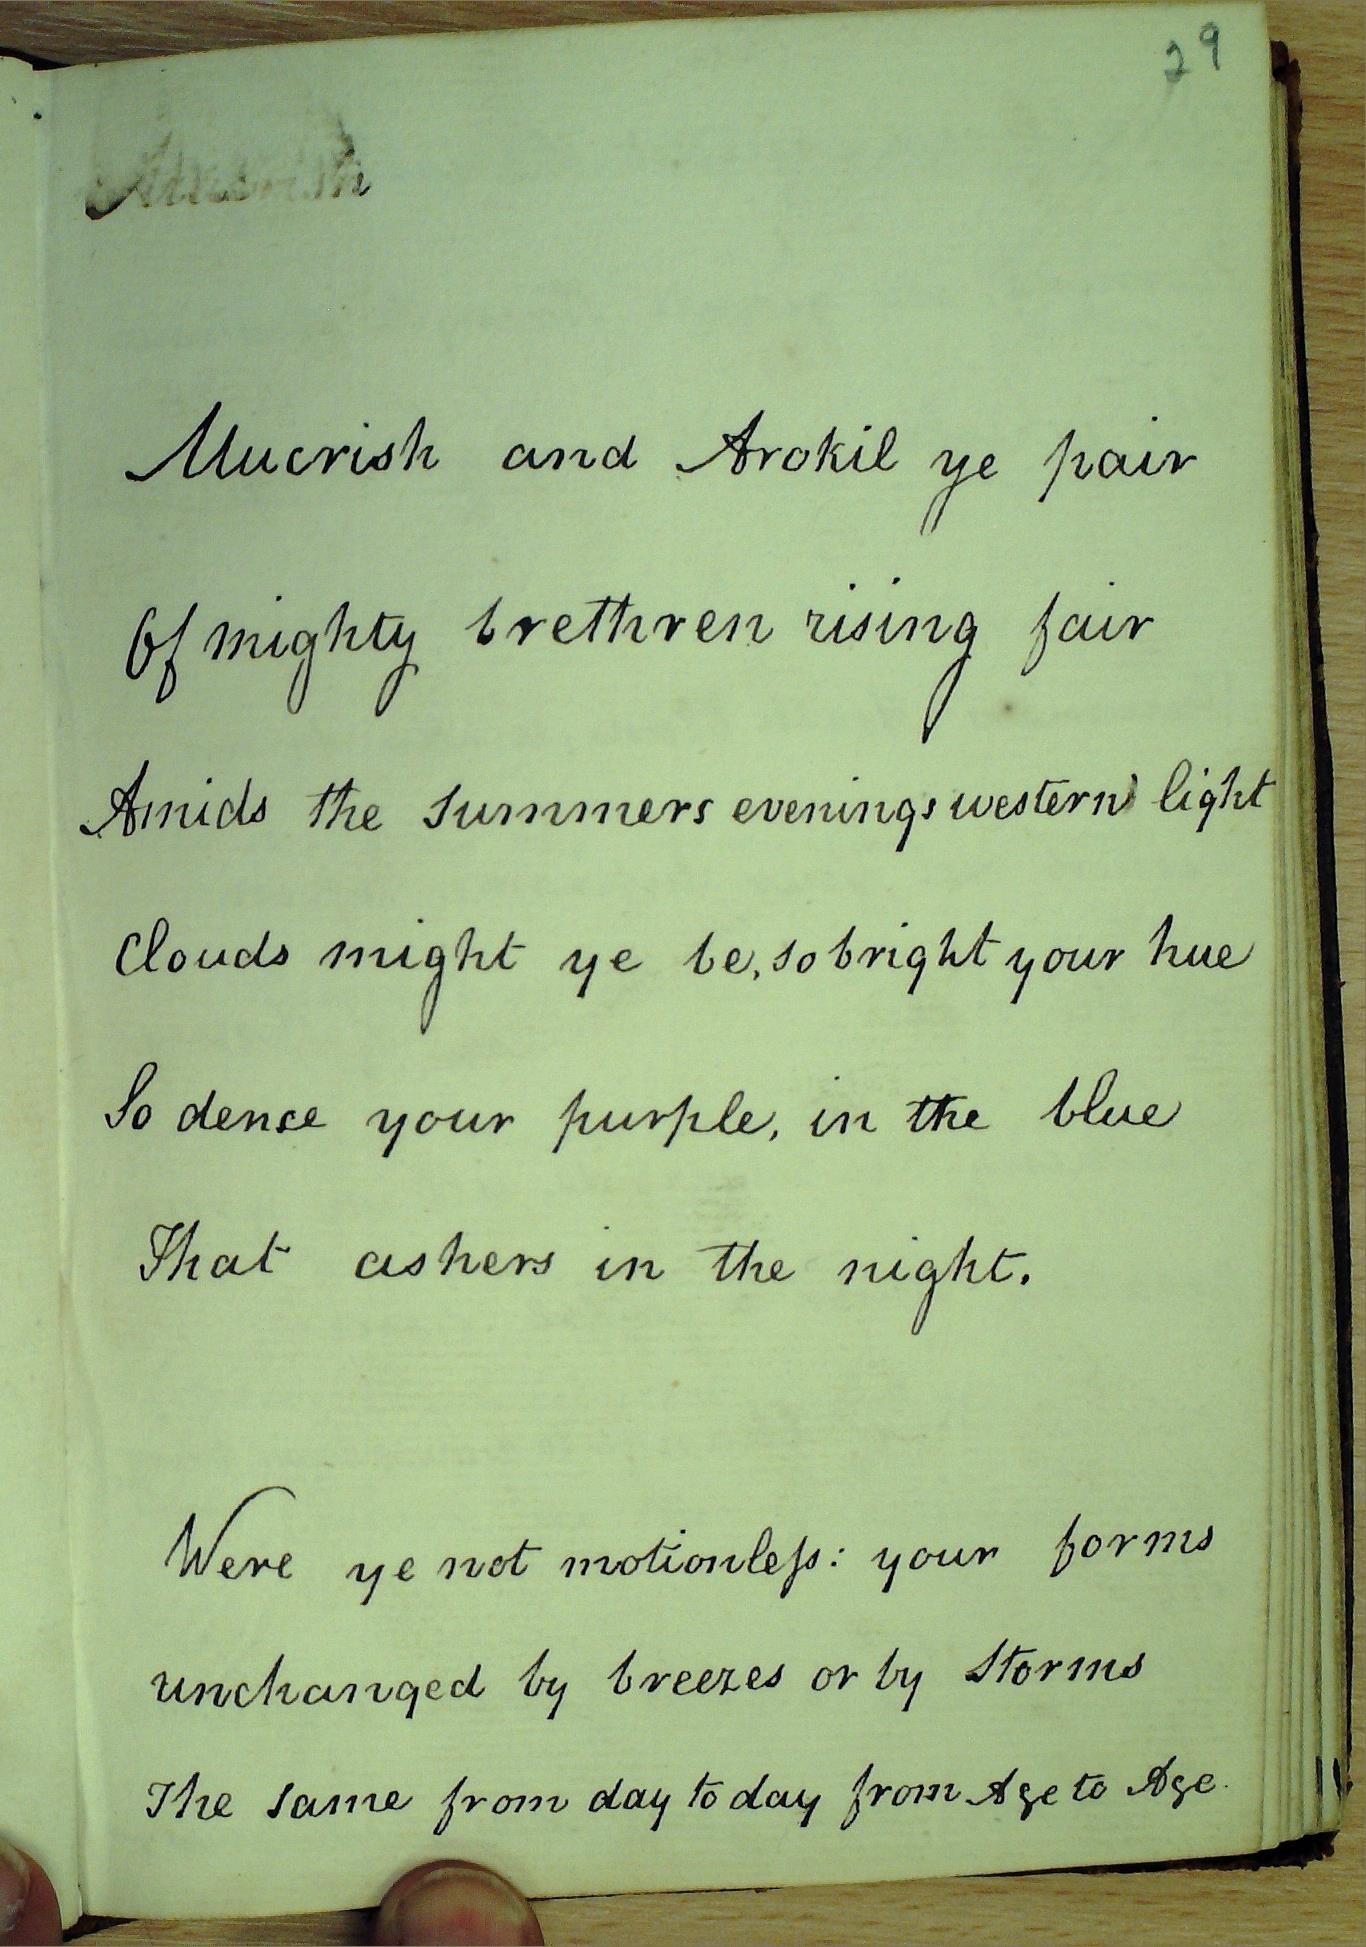 29
Mucrish and Arokil ye pair
Of mighty brethren rising fair
Amids the summers evenings western light
Clouds might ye be, so bright your hue
So dense your purple, in the blue
That ashers in the night.
Were ye not motionless: your forms
unchanged by breezes or by Storms
The same from day to day from Age to Age.